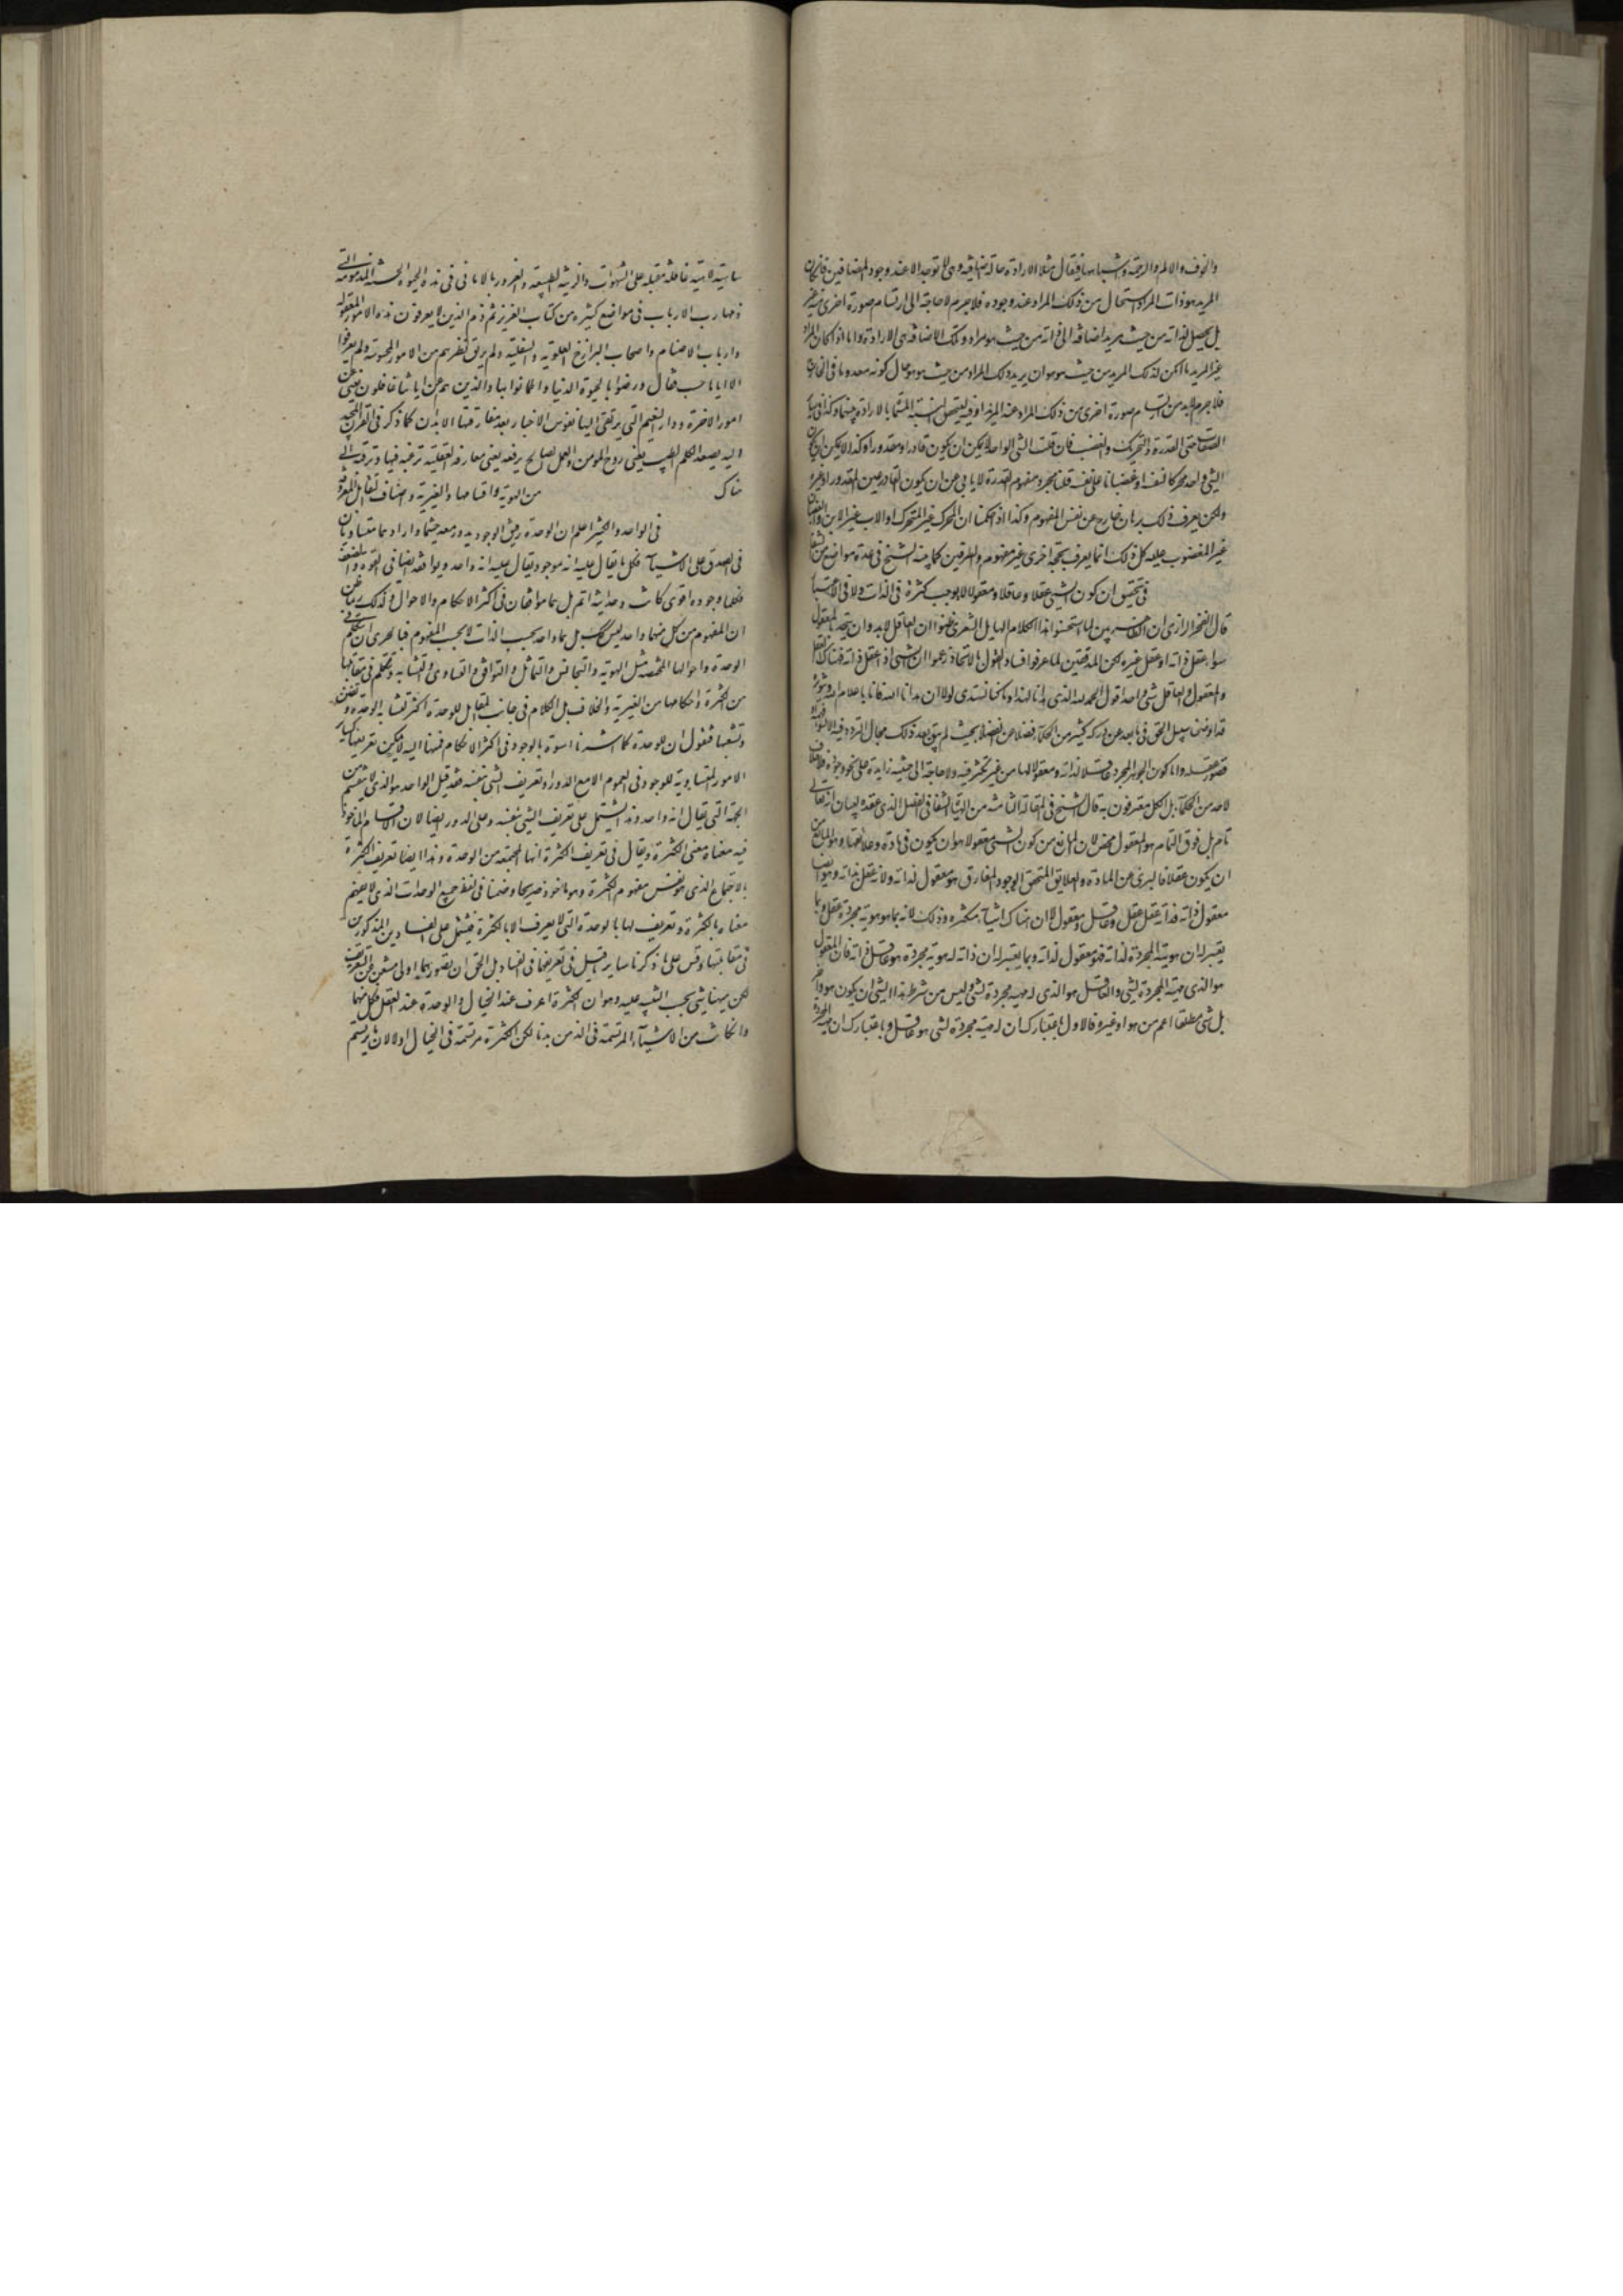 والخوف والالم والرحمة وشباهها فيقال مثلا الارادة حالة اضافية وهى لا توجد الا عند وجود المضافين فان كان
المريد هو ذات المراد استحال من ذلك المراد عند وجوده فلا جرم لا حاجة الى ارتسام صورة اخرى منه
بل يحصل لذاته من حيث مريد اضافة الى ذاته من حيث هو مراد وتلك الاضافة هى الارادة واما اذا كان المراد
غير المريد امكن لذلك المريد من حيث هو هو ان يريد ذلك المراد من حيث هو هو حال كونه معدوما فى الخارج
فلا جرم لابد من ارتسام صورة اخرى من ذلك المراد عند المريد او فيه ليحصل النسبة المسماة بالارادة بينهما وكذا فى ساير
الصفات حتى القدرة والتحريك والغضب فان قلت الشى الواحد لا يمكن ان يكون قادرا ومقدورا وكذا لا يمكن ان يكون
الشى الواحد محركا لنفسه او غضبانا على نفسه قلنا مجرد مفهوم القدرة لا يابى عن ان يكون القادر عين المقدور او غيره
ولكن يعرف ذلك ببرهان خارج عن نفس المفهوم وكذا اذا حكمنا ان المحرك غير المتحرك او الاب غير الابن والغضبان
غير المغضوب عليه كل ذلك انما يعرف بحجة اخرى غير مفهوم الطرفين كما بينه الشيخ فى عدة مواضع من الشفا
فى تحقيق ان كون الشى عقلا وعاقلا ومعقولا لا يوجب كثرة فى الذات ولا فى الاعتبار
قال الفخر الرازى ان القاصرين لما استحسنوا هذا الكلام الهايل الشعرى ظنوا ان العاقل لابد وان يتحد بالمعقول
سواء عقل ذاته او عقل غيره لكن المدققين لما عرفوا فساد القول بالاتحاد زعموا ان الشى اذا عقل ذاته فهناك العقل
والمعقول والعاقل شى واحد اقول الحمد لله الذى هدانا لهذا وما كنا لنهتدى لولا ان هدانا الله فانا باعلام الله
قد اوضحنا سبيل الحق فيما بعد عن دركه كثير من الحكماء فضلا عن الفضلاء بحيث لم يبق بعد ذلك مجال التردد فيه الا
قصور عقله واما كون الجوهر المجرد عاقلا لذاته ومعقولا لها من غير تكثر فيه ولا حاجة الى حيثية زايدة على نحو وجوده فلا خلاف
لاحد من الحكماء بل الكل معترفون به قال الشيخ فى المقالة الثامنة من الهيات الشفا فى الفصل الذى عقده لبيان انه تعالى
تام بل فوق التمام هو المعقول محض لان المانع من كون الشى معقولا هو ان يكون فى مادة وعلائقها وهو المانع من
ان يكون عقلا فالبرى عن المادة والعلايق المتحقق بالوجود المفارق هو معقول لذاته ولانه عقل بذاته وهو ايضا
معقول ذاته فذاته عقل وعاقل ومعقول لا ان هناك اشياء متكثرة وذلك لانه بما هو هوية مجردة عقل وبما
يعتبر له ان هويته المجردة لذاته فهو معقول لذاته وبما يعتبر له ان ذاته له هوية مجردة هو عاقل ذاته فان المعقول
هو الذى ماهيته المجردة لشى والعاقل هو الذى له ماهية مجردة لشى وليس من شرط هذا الشى ان يكون هو او اخر
بل شى مطلقا اعم من هو او غيره فالاول باعتبارك ان له ماهية مجردة لشى هو عاقل وباعتبارك ان ماهيته المجردة
ساهية لاهية غافلة مقبلة على الشهوات والغرور بالامانى فى هذه الحيوة الخسيسة المذمومة التى
ذمها رب الارباب فى مواضع كثيرة من كتابه العزيز ثم ذم الذين لا يعرفون هذه الامور المعقولة
وارباب الاصنام واصحاب البرازخ العلوية والسفلية ولم يرتق نظرهم من الامور المحسوسة ولم يعرفوا
الا اياها حسب فقال ورضوا بالحيوة الدنيا واطمانوا بها والذين هم عن اياتنا غافلون يعنى عن
امور الاخرة ودار النعيم التى يرتقى اليها نفوس الاخيار بعد مفارقتها الابدان كما ذكر فى القران المجيد
اليه يصعد الكلم الطيب يعنى روح المومن والعمل الصالح يرفعه يعنى معارفه العقلية ترغبه فيها وترقيه الى
هناك من الهوية واقسامها والغيرية واصناف التقابل المعروفة
فى الواحد والكثير اعلم ان الوحدة رفيق الوجود يدور معه حيثما دار اذ هما متساويان
فى الصدق على الاشياء فكل ما يقال عليه انه موجود يقال عليه انه واحد ويوافقه ايضا فى القوة والضعف
فكلما وجوده اقوى كانت وحدانيته اتم بل هما متوافقان فى اكثر الاحكام والاحوال ولذلك ربما ظن
ان المفهوم من كل منهما واحد وليس كذلك بل هما واحد بحسب الذات لا بحسب المفهوم فبالحرى ان نتكلم فى
الوحدة واحوالها المختصة مثل الهوية والتجانس والتماثل والتوافق والتساوى والتشابه ونتكلم فى مقابلها
من الكثرة واحكامها من الغيرية والخلاف بل الكلام فى جانب المقابل للوحدة اكثر لتشابه الوحدة وتفنن
وتشعبها فنقول ان للوحدة كما اشرنا اسوة بالوجود فى اكثر الاحكام فمنها انه لا يمكن تعريفها كساير
الامور المتساوية للوجود فى العموم الا مع الدور او تعريف الشى بنفسه فقد قيل الواحد هو الذى لا ينقسم من
الجهة التى يقال انه واحد وهذا يشتمل على تعريف الشى بنفسه وعلى الدور ايضا لان الانقسام الماخوذ
فيه معناه معنى الكثرة ويقال فى تعريف الكثرة انها المجتمعة من الوحدة وهذا ايضا تعريف الكثرة
بالاجتماع الذى هو نفس مفهوم الكثرة وهو ماخوذ صريحا وضمنا فى لفظ جميع الوحدات الذى لا يفهم
معناه الا بالكثرة وتعريف لها بالوحدة التى لا يعرف الا بالكثرة فيشتمل على الفسادين المذكورين
فى مقابلتها وقس على ما ذكرنا ساير ما قيل فى تعريفهما فى الفساد بل الحق ان تصورهما اولى مستغن عن التعريف
لكن ههنا شى يجب التنبيه عليه وهو ان الكثرة اعرف عند الخيال والوحدة عند العقل فكل منهما
وان كانت من الاشياء المرتسمة فى الذهن بدئا لكن الكثرة مرتسمة فى الخيال اولا لان ما يرتسم